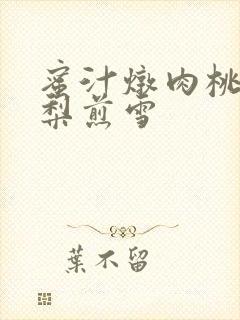 蜜汁燉肉桃
梨煎雪
葉不留